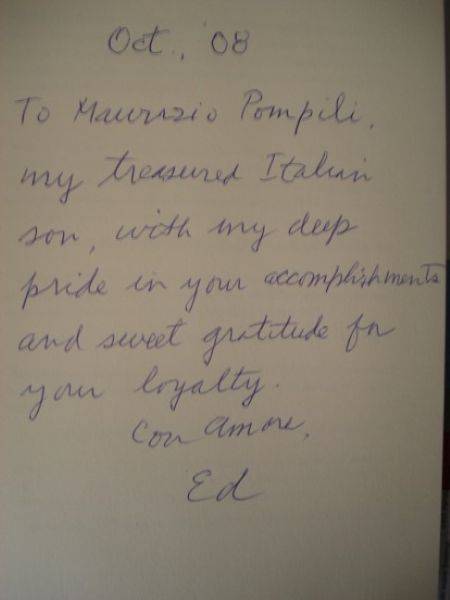 Oct., '08
To Maurizio Pompili,
my treasured Italian
son, with my deep
pride in your accomplishments
and sweet gratitude for
your loyalty.
Con amore,
Ed